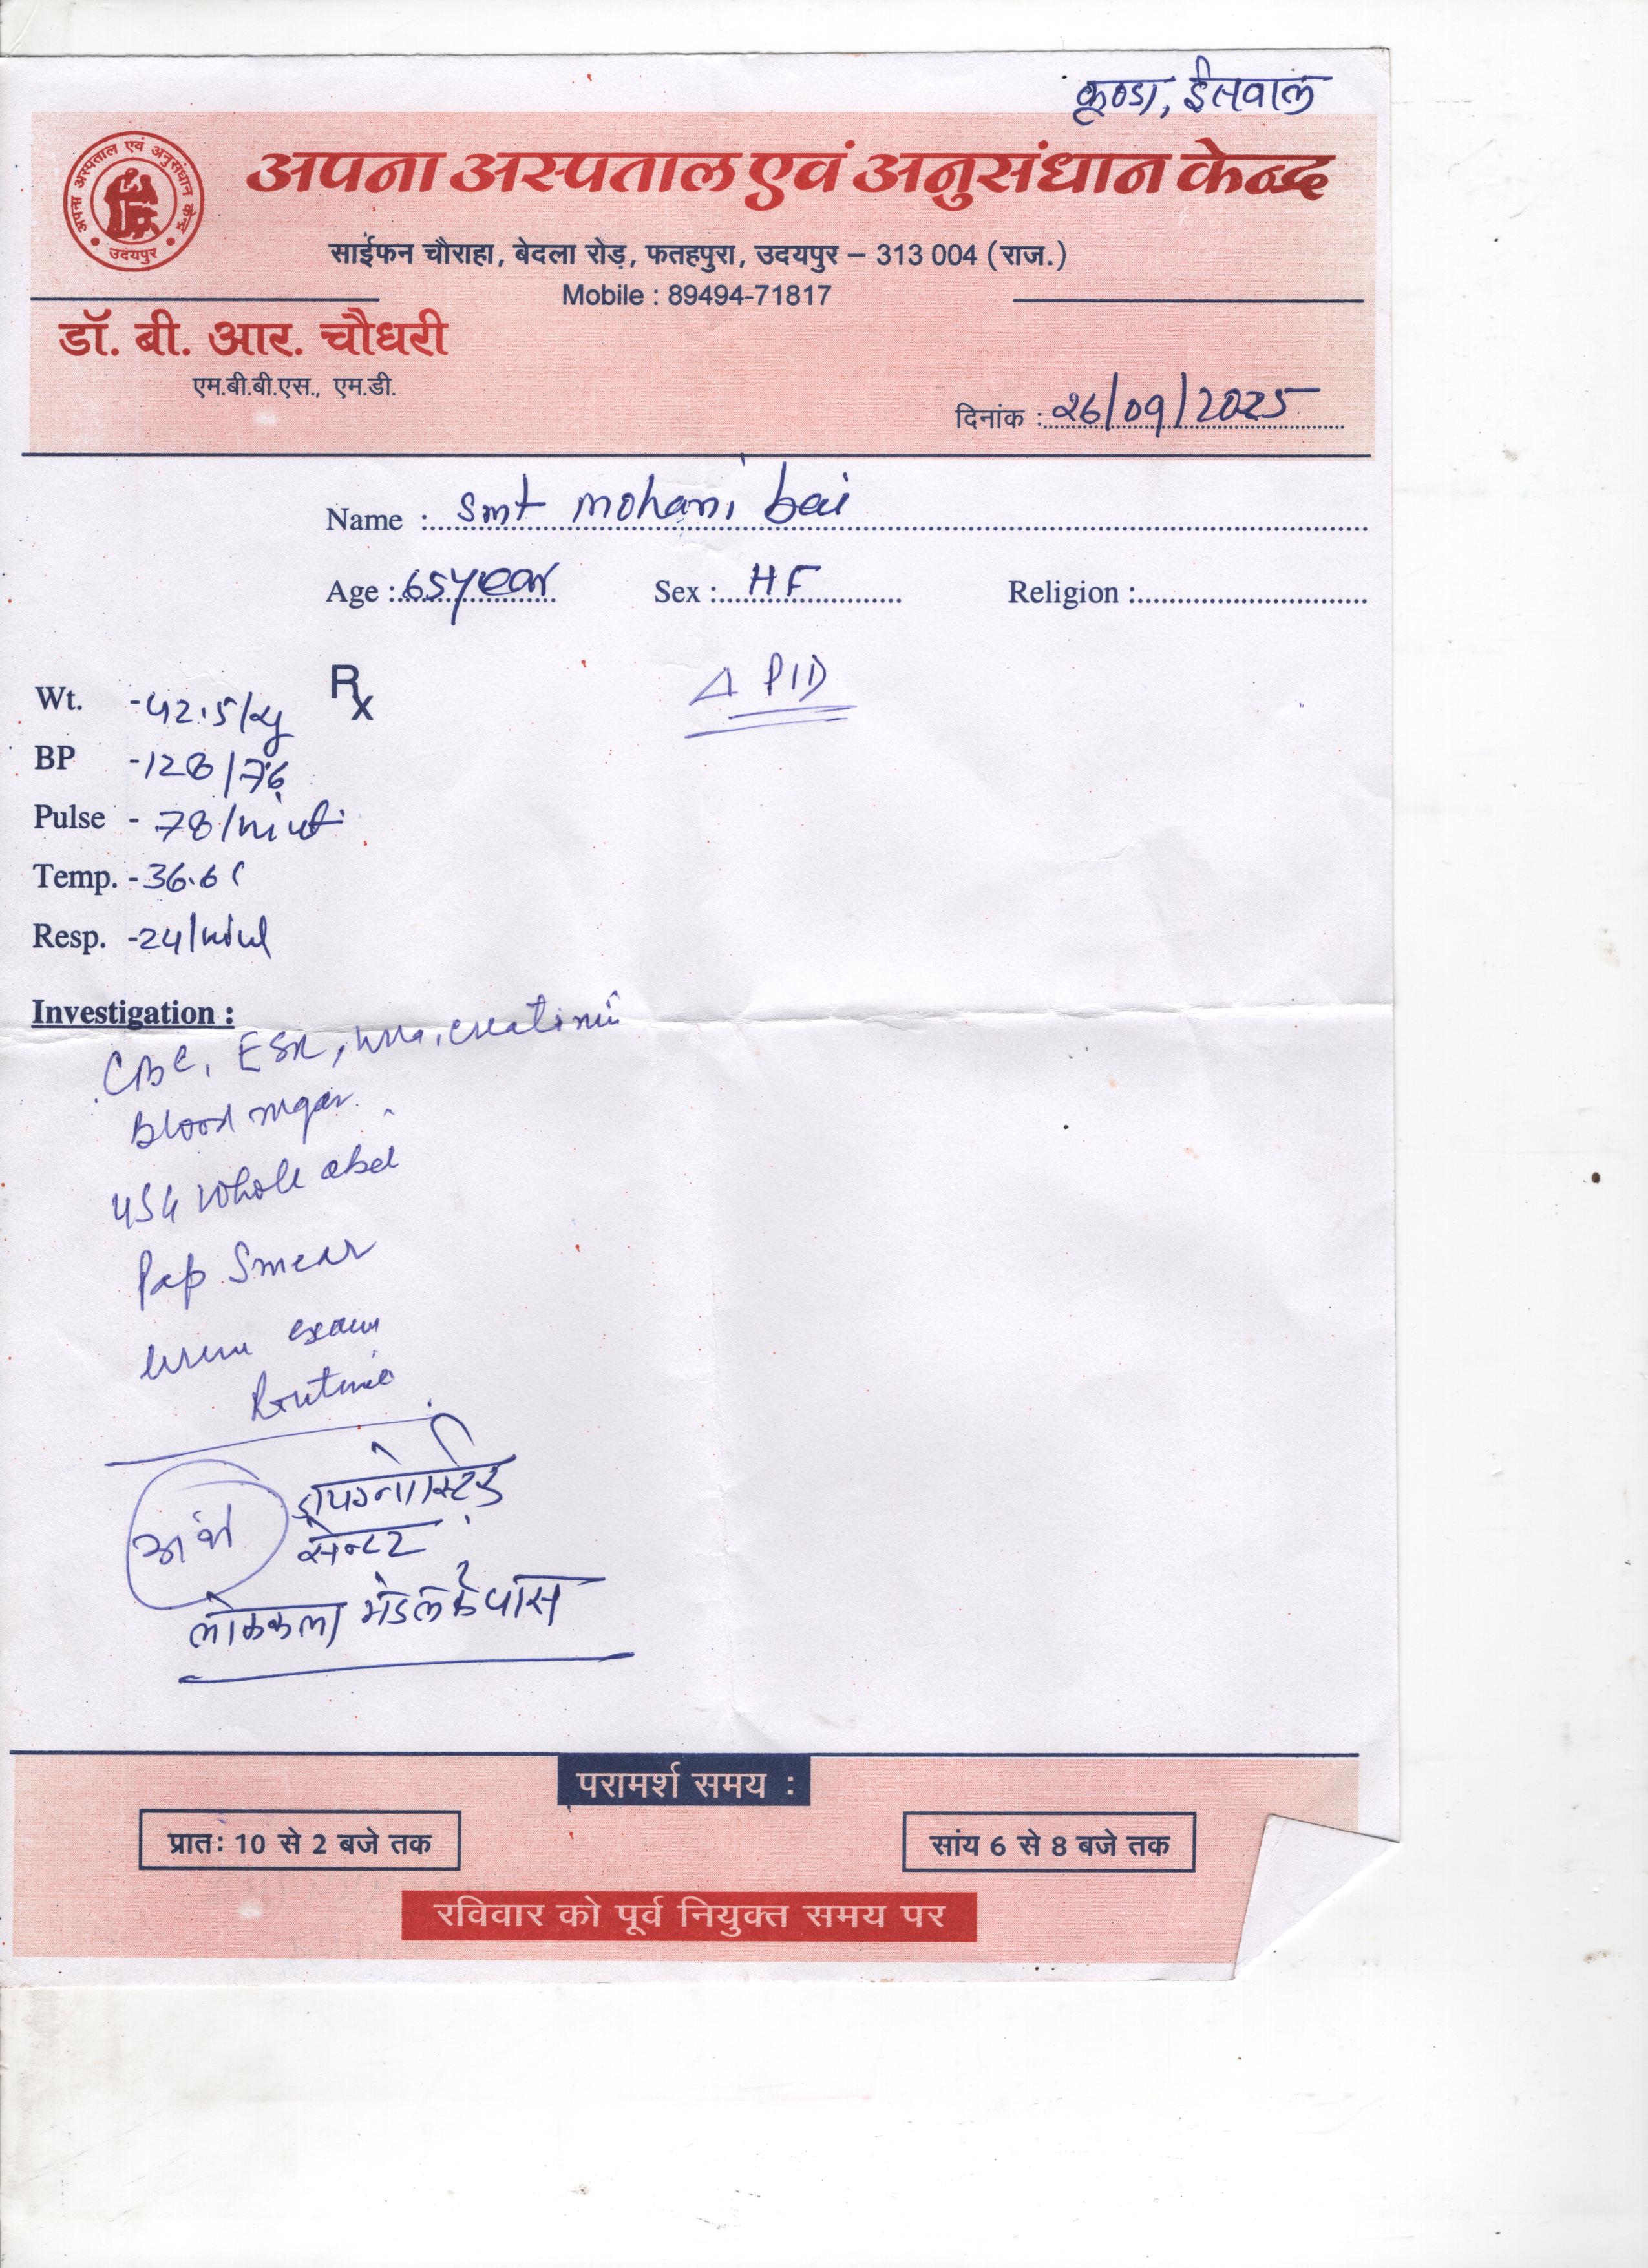 कूण्डा, ईसवाल
अपना अस्पताल एवं अनुसंधान केन्द्र
अपना अस्पताल एवं अनुसंधान केन्द्र
उदयपुर
साईफन चौराहा, बेदला रोड़, फतहपुरा, उदयपुर – 313 004 (राज.)
Mobile : 89494-71817
डॉ. बी. आर. चौधरी
एम.बी.बी.एस., एम.डी.
दिनांक : 26/09/2025
Name : Smt mohani bai
Age : 65 year Sex : H F Religion :
Rx
Δ PID
Wt. - 42.5/kg
BP - 128/76
Pulse - 78/minut
Temp. - 36.6 C
Resp. - 24/minut
Investigation :
CBC, ESR, urea, creatinine
Blood sugar
USG Whole abd
Pap Smear
urine exam
Routine
डायग्नोस्टिक
सेन्टर
लोककला मंडल के पास
परामर्श समय :
प्रातः 10 से 2 बजे तक
सांय 6 से 8 बजे तक
रविवार को पूर्व नियुक्त समय पर